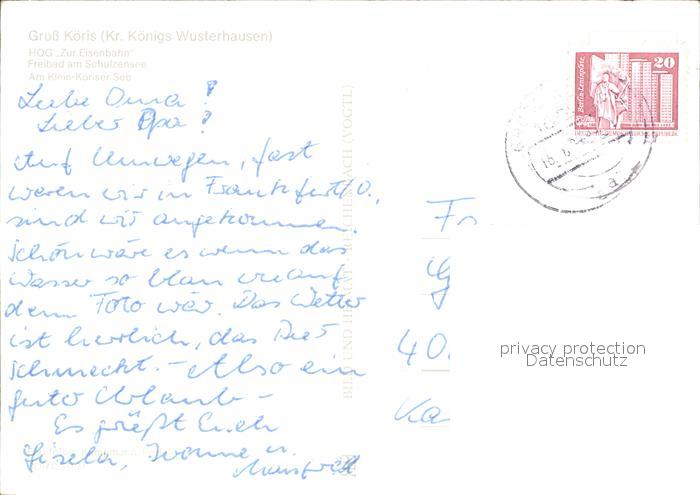 Groß Köris (Kr. Königs Wusterhausen)
HOG „Zur Eisenbahn"
Freibad am Schulzensee
Am Klein-Köriser See
Liebe Oma!
Lieber Opa!
Auf Umwegen, fast
waren wir in Frankfurt/O.,
sind wir angekommen.
Schön wäre es wenn das
Wasser so blau wie auf
dem Foto wär. Das Wetter
ist herrlich, das Bier
schmeckt. – Also ein
guter Urlaub –
Es grüßt Euch
Gisela, Ivonne u.
Manfred
BILD UND HEIMAT REICHENBACH (VOGTL)
Berlin-Leninplatz
20
DEUTSCHE DEMOKRATISCHE REPUBLIK
Fr
40
Ka
privacy protection
Datenschutz